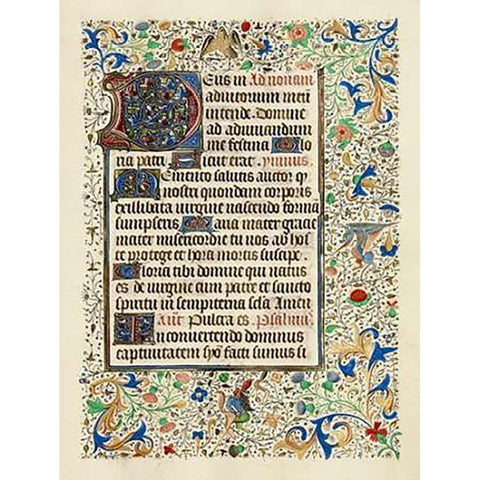 Deus in Ad nonam
adiutorium meū
intende. Domine
ad adiuuandum
me festina Glo
ria patri Sicut erat. ymnus.
Memento salutis auctor q
nostri quondam corporis
ex illibata uirgine nascendo formā
sumpseris Maria mater gracie
mater misericordie tu nos ab hos
te protege et hora mortis suscipe.
Gloria tibi domine qui natus
es de uirgine cum patre et sancto
spiritu in sempiterna scła Amen
añt Pulcra es. Psalmus
In conuertendo dominus
captiuitatem syon facti sumus si